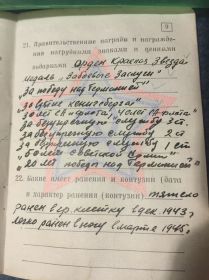 9
21. Правительственные награды и награжде-
ния нагрудными знаками и ценными
подарками Орден Красная Звезда
Медаль "Боевые Заслуги"
"За победу над Германией"
"За взятие Кенигсберга"
30 лет СА и флота,
"За безупречную" службу 3 ст.
За безупречную службу 2 ст
За безупречную службу 1 ст
50 лет Советской Армии
"20 лет победы над Германией"
22. Какие имеет ранения и контузии (дата
и характер ранения, контузии) тяжело
ранен в гр. клетку в дек 1943г,
легко ранен в ногу в марте 1945г.